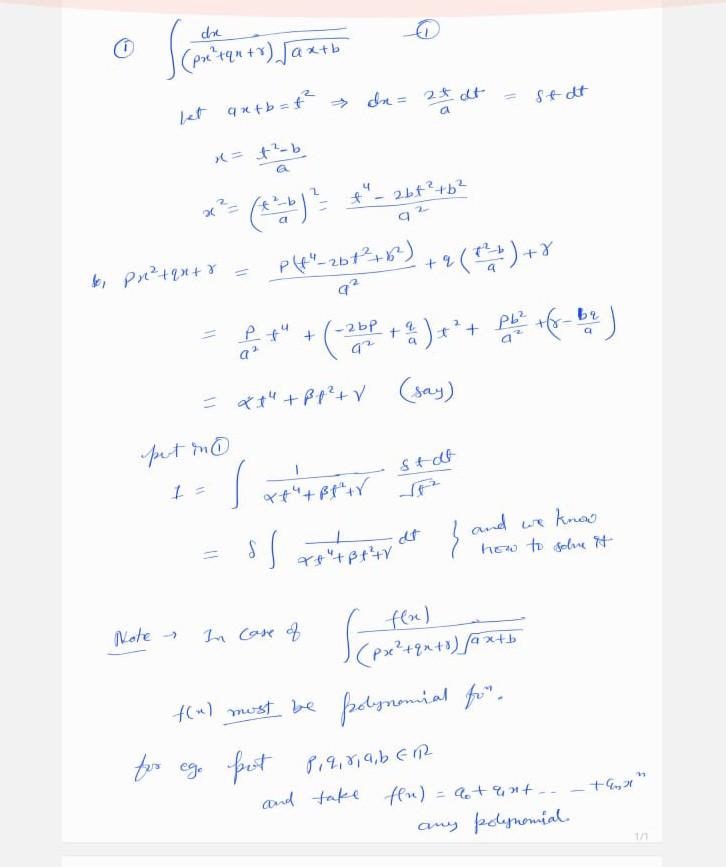 ① ∫ dx / (px²+qx+r)√ax+b —①
Let ax+b = t² ⇒ dx = 2t/a dt = δt dt
x = t²-b / a
x² = (t²-b / a)² = t⁴ - 2bt²+b² / a²
so, px²+qx+r = p(t⁴-2bt²+b²) / a² + q(t²-b / a)+r
= p/a² t⁴ + (-2bp/a² + q/a)t² + pb²/a² +(r- bq/a)
= αt⁴ + βt²+γ (say)
put in ①
I = ∫ 1 / αt⁴+βt²+γ δt dt / √t²
= δ ∫ 1 / αt⁴+βt²+γ dt } and we know
how to solve it
Note → In case of ∫ f(x) / (px²+qx+r)√ax+b
f(x) must be polynomial fuⁿ.
for eg. put p,q,r,a,b ∈ R
and take f(x) = a₀ + a₁x+ .. - +aₙxⁿ
any polynomial.
1/1